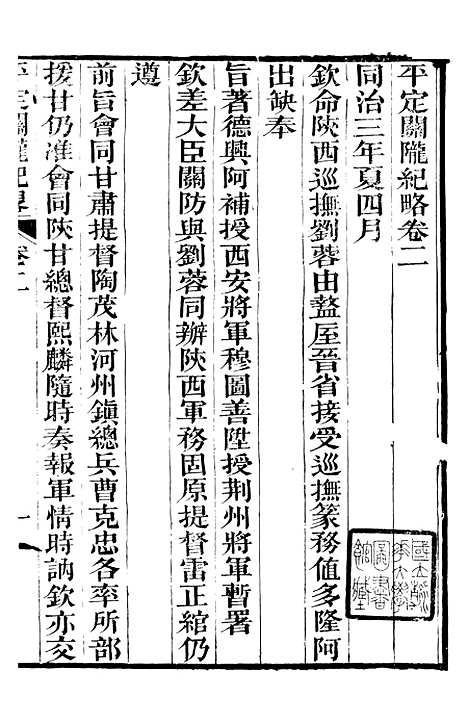 平定關隴紀略卷二
同治三年夏四月
欽命陝西巡撫劉蓉由盩厔晉省接受巡撫篆務值多隆阿
出缺奉
旨著德興阿補授西安將軍穆圖善陞授荆州將軍暫署
欽差大臣關防與劉蓉同辦陝西軍務固原提督雷正綰仍
遵
前旨會同甘肅提督陶茂林河州鎭總兵曹克忠各率所部
援甘仍准會同陝甘總督熙麟隨時奏報軍情時訥欽亦交
平定關隴紀略
卷二
一